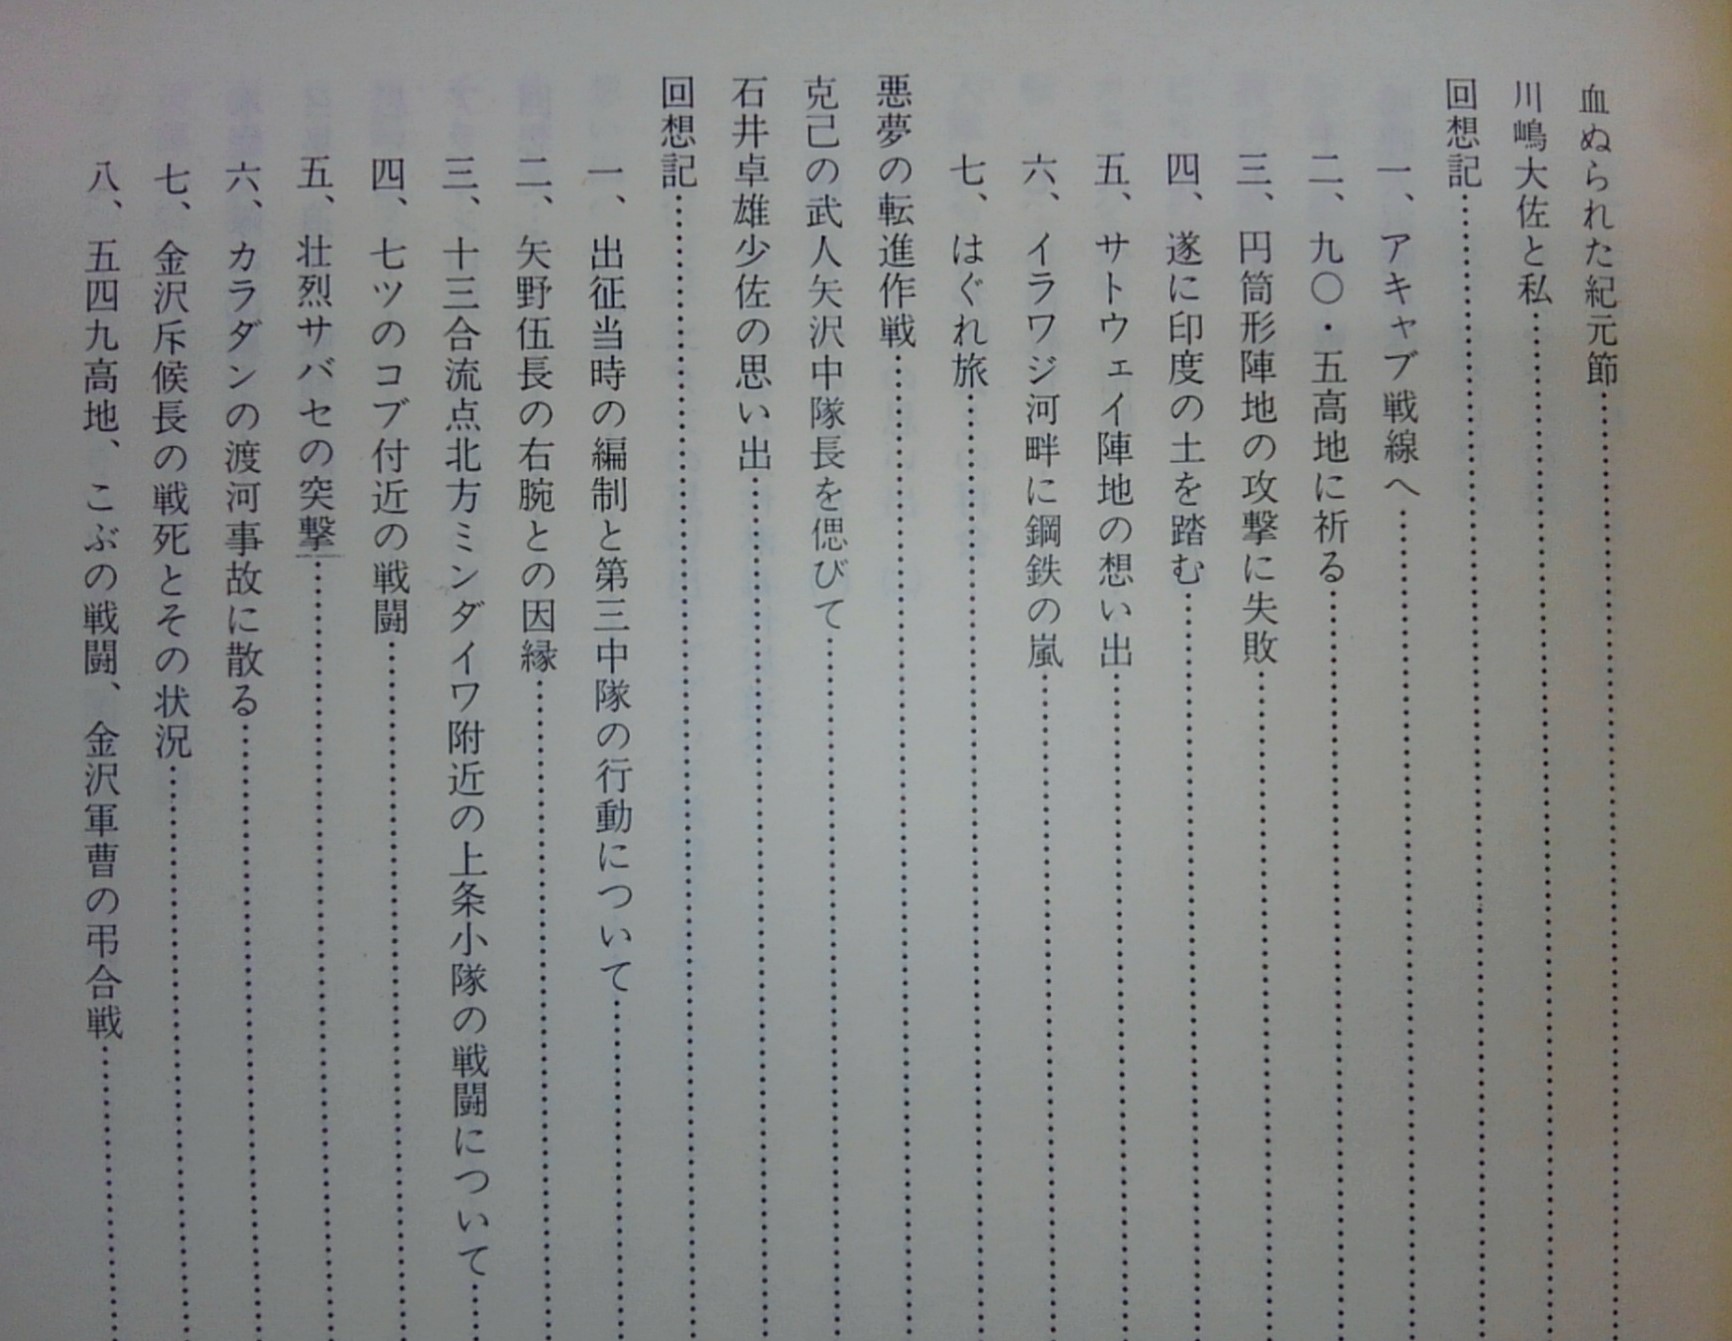 血ぬられた紀元節……………………
川嶋大佐と私……………………
回想記……………………
一、アキャブ戦線へ……………………
二、九〇・五高地に祈る……………………
三、円筒形陣地の攻撃に失敗……………………
四、遂に印度の土を踏む……………………
五、サトウェイ陣地の想い出……………………
六、イラワジ河畔に鋼鉄の嵐……………………
七、はぐれ旅……………………
悪夢の転進作戦……………………
克己の武人矢沢中隊長を偲びて……………………
石井卓雄少佐の思い出……………………
回想記……………………
一、出征当時の編制と第三中隊の行動について……………………
二、矢野伍長の右腕との因縁……………………
三、十三合流点北方ミンダイワ附近の上条小隊の戦闘について……
四、七ツのコブ付近の戦闘……………………
五、壮烈サバセの突撃……………………
六、カラダンの渡河事故に散る……………………
七、金沢斥候長の戦死とその状況……………………
八、五四九高地、こぶの戦闘、金沢軍曹の弔合戦……………………